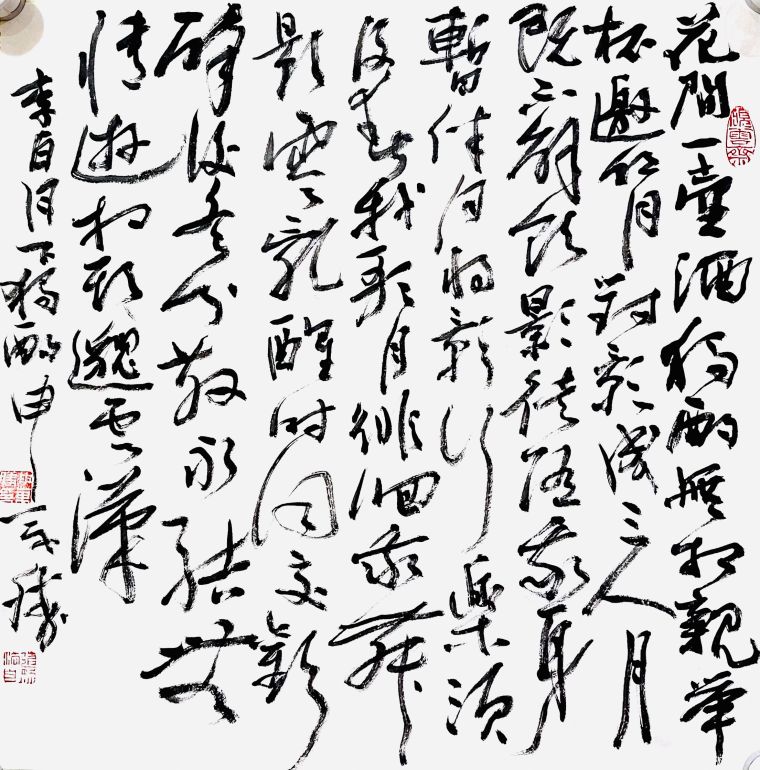 花間一壺酒獨酌無相親舉
杯邀明月對影成三人月
既不解飲影徒隨我身
暫伴月將影行樂須
及春我歌月徘徊我舞
影零亂醒時同交歡
醉後各分散永結無
情遊相期邈雲漢
李白月下獨酌申